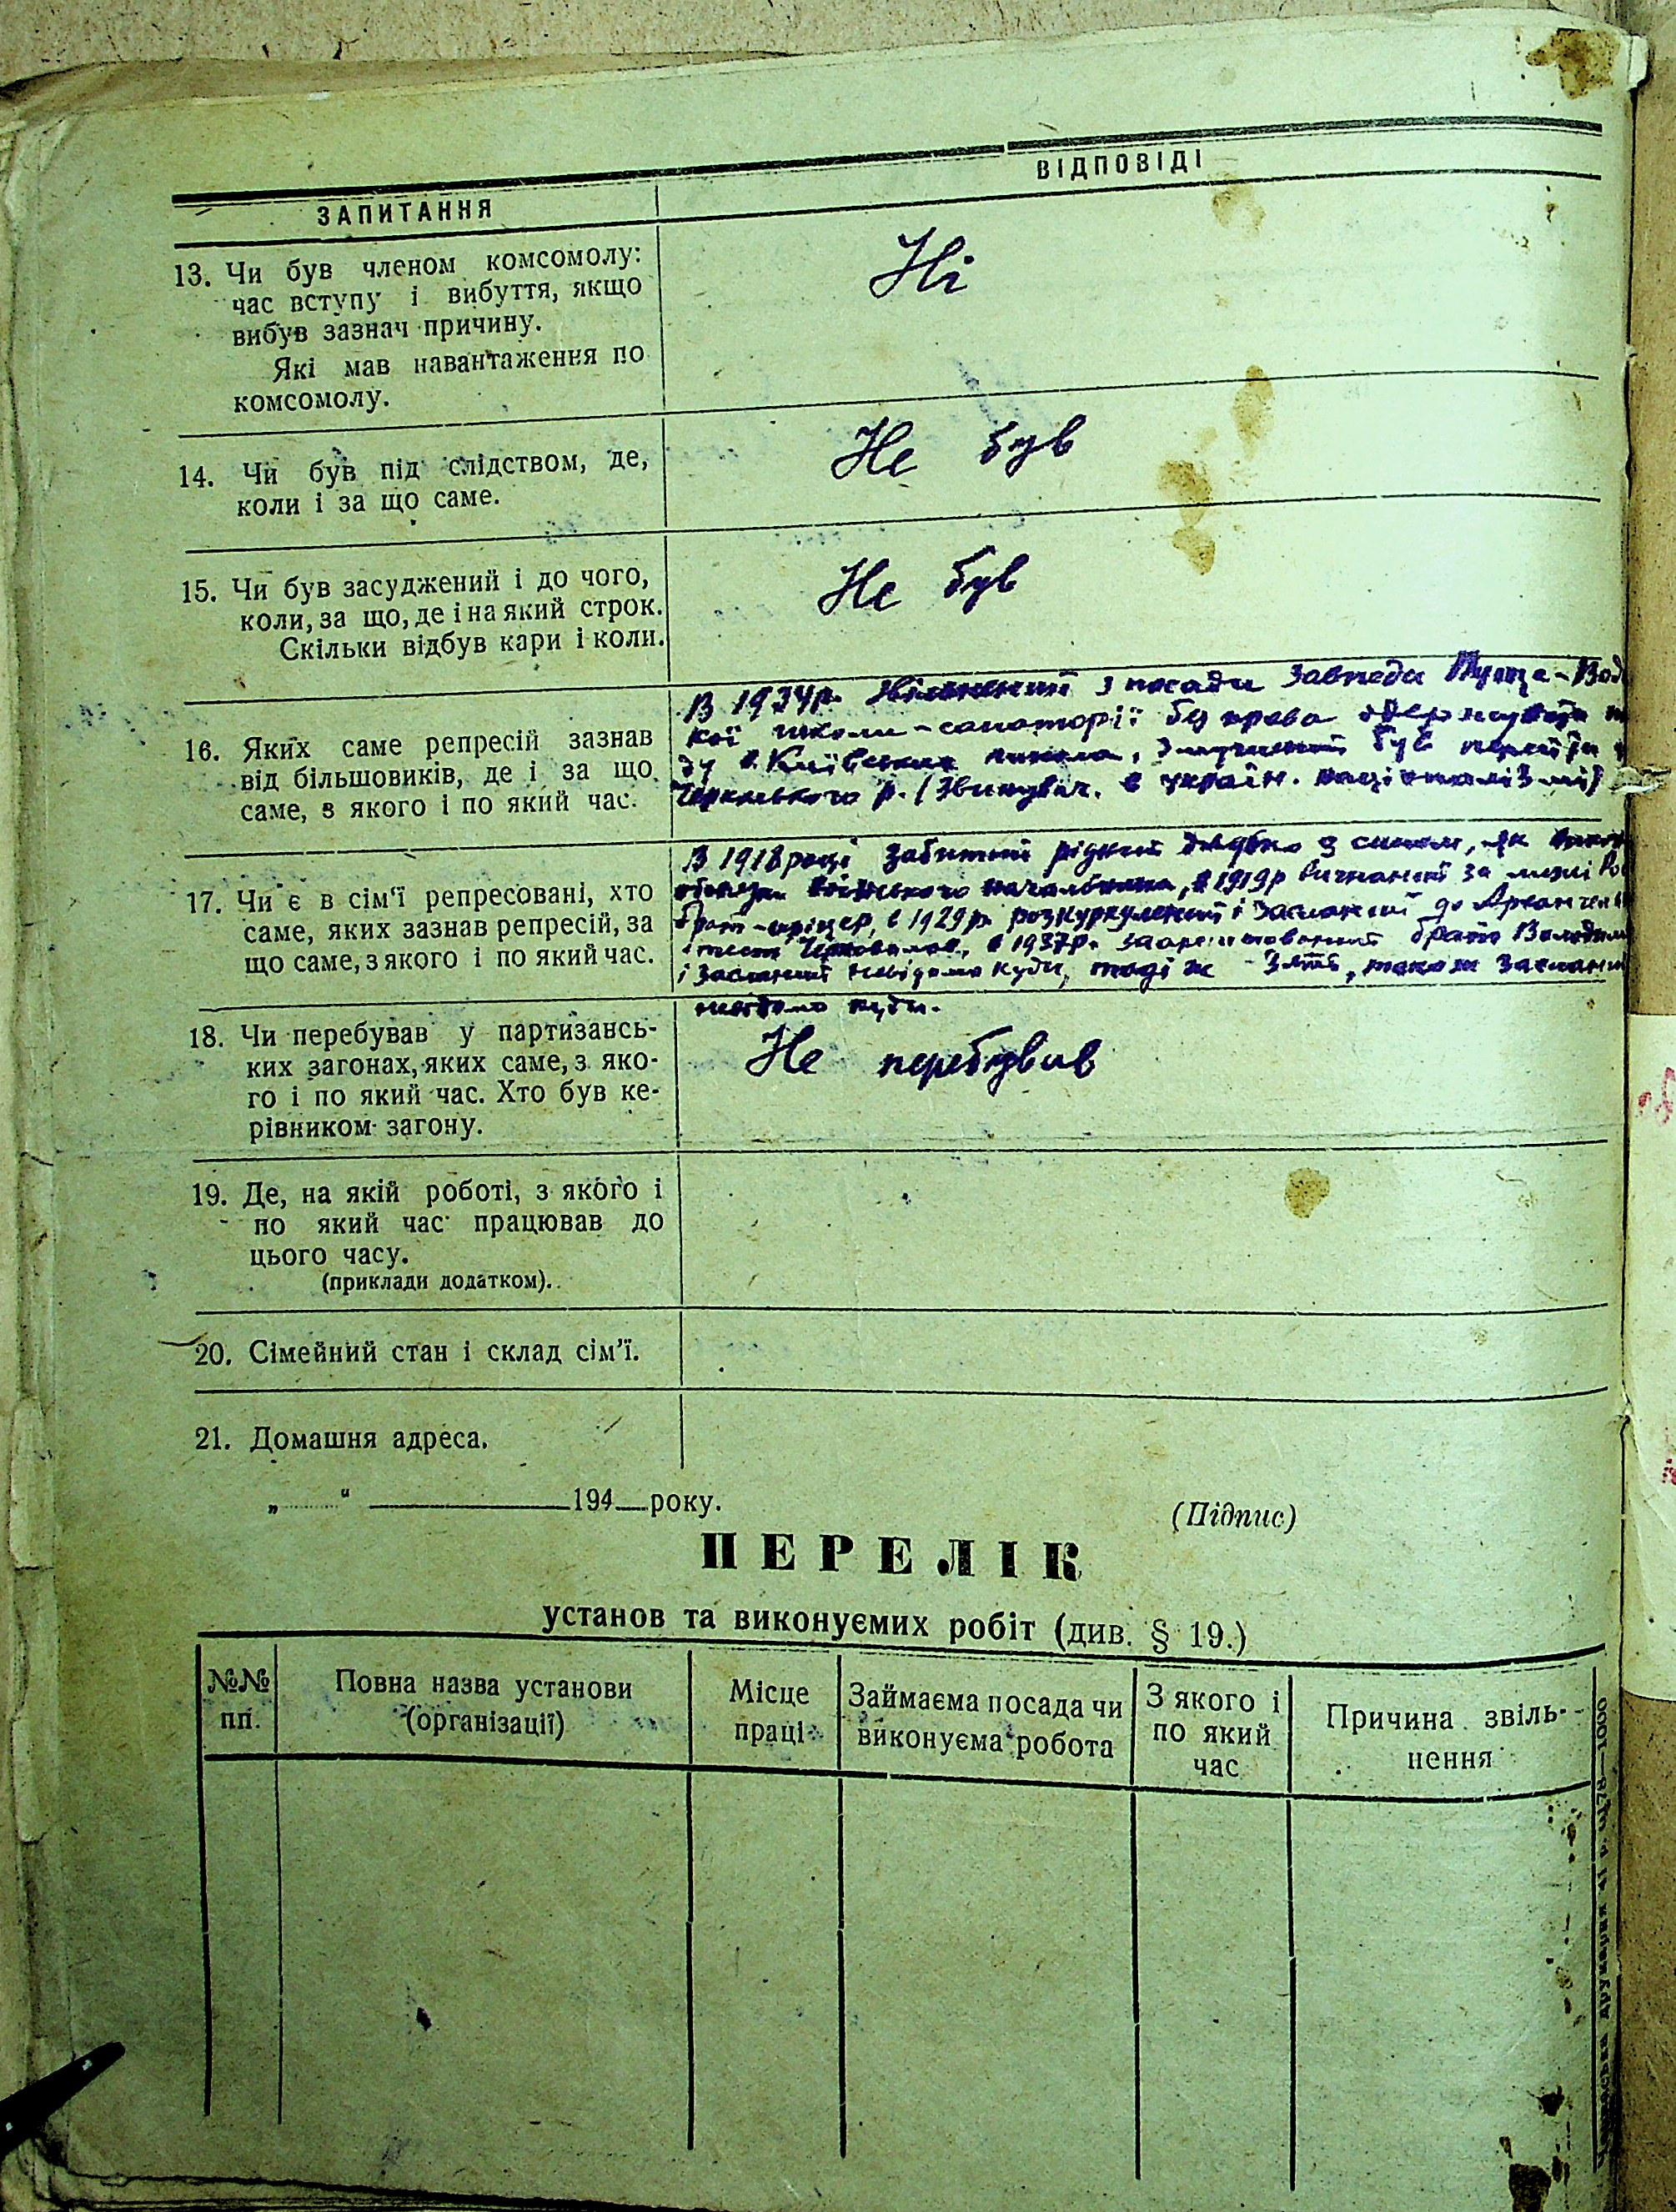 ЗАПИТАННЯ
ВІДПОВІДІ
13. Чи був членом комсомолу:
час вступу і вибуття, якщо
вибув зазнач причину.
Які мав навантаження по
комсомолу.
Ні
14. Чи був під слідством, де,
коли і за що саме.
Не був
15. Чи був засуджений і до чого,
коли, за що, де і на який строк.
Скільки відбув кари і коли.
Не був
16. Яких саме репресій зазнав
від більшовиків, де і за що
саме, з якого і по який час.
В 1934р. Звільнений з посади Завпеда Пуще-Вод
кої школи-санаторії без права одержувати
ду в Київських школах, змушений був перейти
р. (Звинувач. в україн. націоналізмі)
17. Чи є в сім'ї репресовані, хто
саме, яких зазнав репресій, за
що саме, з якого і по який час.
В 1918 році забитий рідний дядько з сином, як
військового начальника, в 1919р вигнаний за межі
брат-офіцер, в 1929р. розкуркулений і засланий до
і тесть в 1937р. заарештований брат
і засланий невідомо куди, тоді ж зять, також
невідомо куди.
18. Чи перебував у партизансь-
ких загонах, яких саме, з яко-
го і по який час. Хто був ке-
рівником загону.
Не перебував
19. Де, на якій роботі, з якого і
по який час працював до
цього часу.
(приклади додатком).
20. Сімейний стан і склад сім'ї.
21. Домашня адреса.
„ “ 194 року.
(Підпис)
ПЕРЕЛІК
установ та виконуємих робіт (див. § 19.)
№№ пп.
Повна назва установи (організації)
Місце праці
Займаєма посада чи виконуєма робота
З якого і по який час
Причина звіль-нення